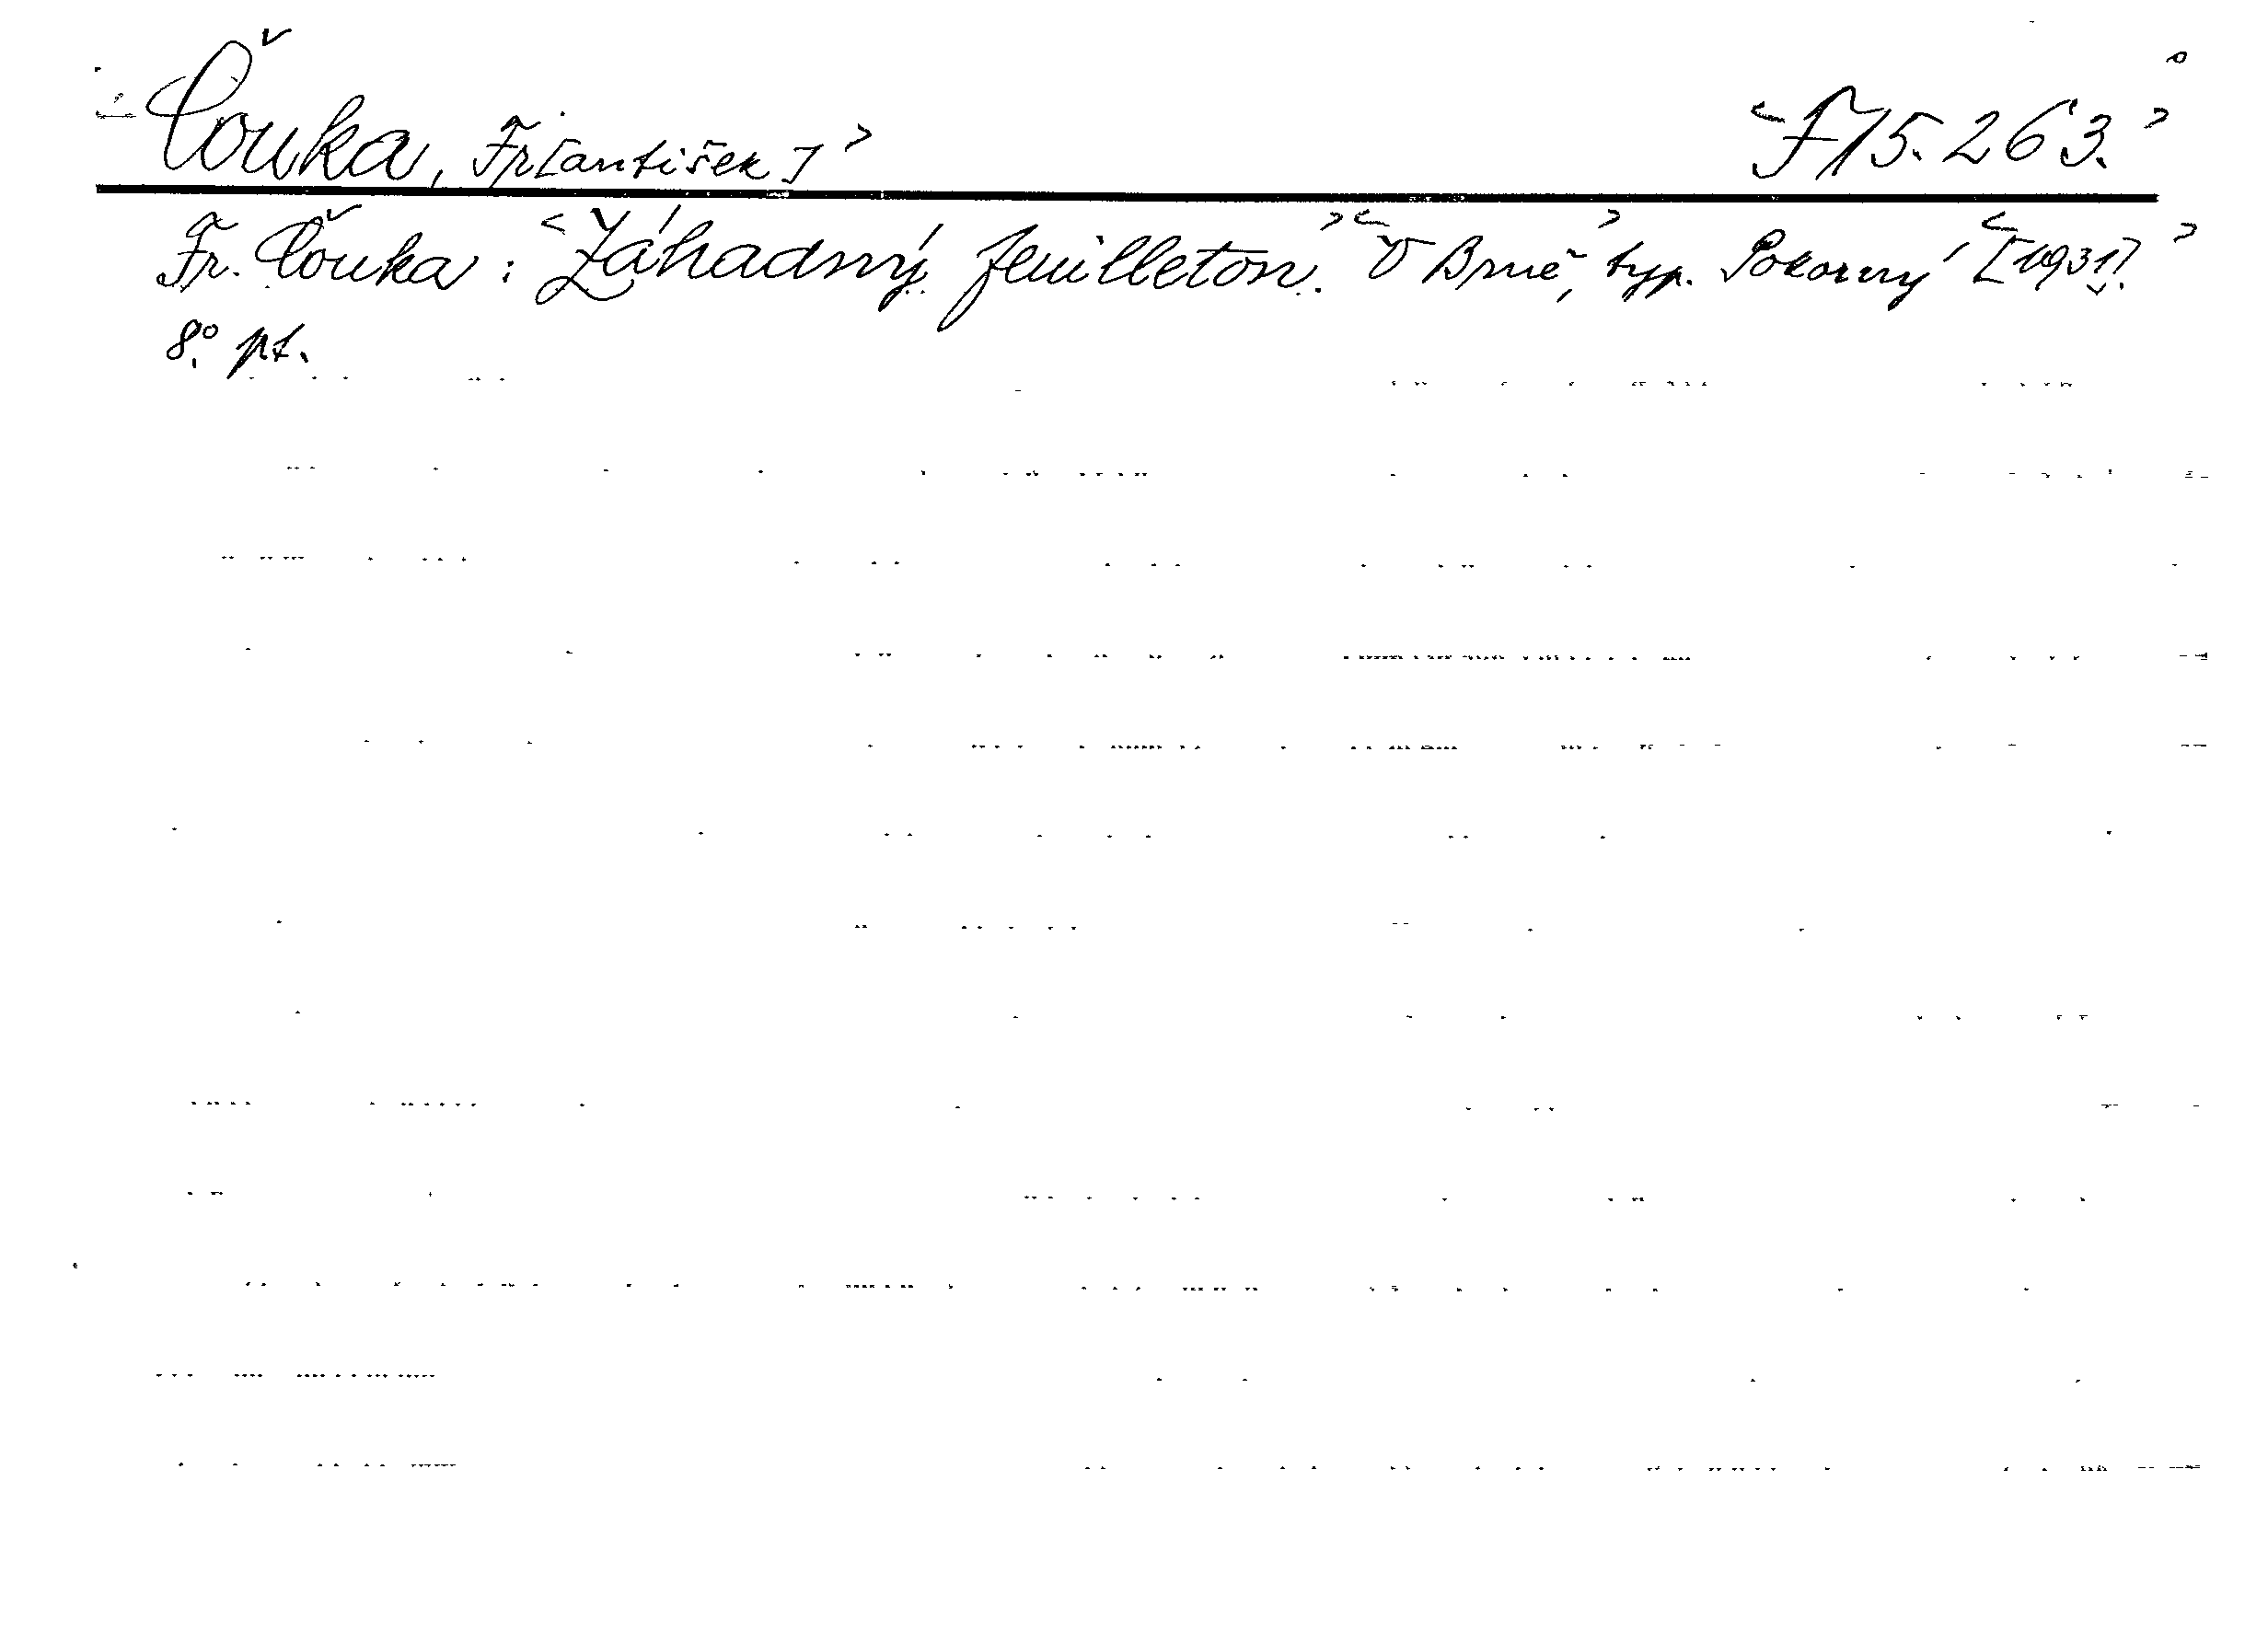 Čouka, Fr[antišek] F 15.263.
Fr. Čouka: Záhadný feuilleton. V Brně, typ. Pokorný [1931].
8° pt.